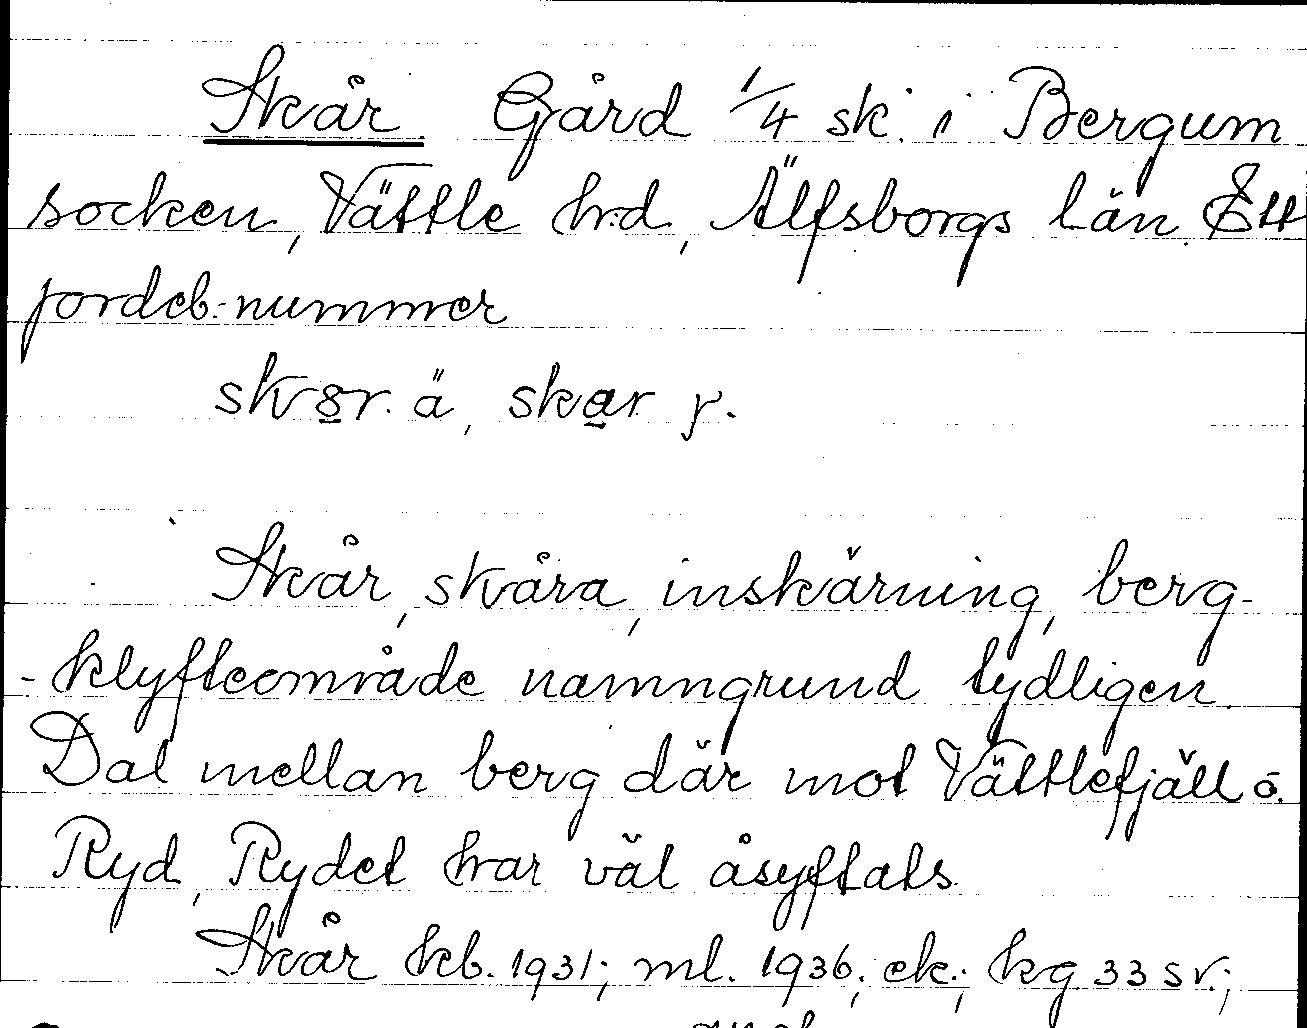 Skår Gård 1/4 sk. i Bergum
socken, Vättle h:d, Älfsborgs län. Ett
jordeb:nummer
skɤr. ä, skar y.
Skår, skåra, inskärning, berg-
-klyfteområde namngrund tydligen.
Dal mellan berg där mot Vättlefjäll o.
Ryd, Rydet har väl åsyftats.
Skår kb. 1931; ml. 1936; ek.; kg 33 sv.;